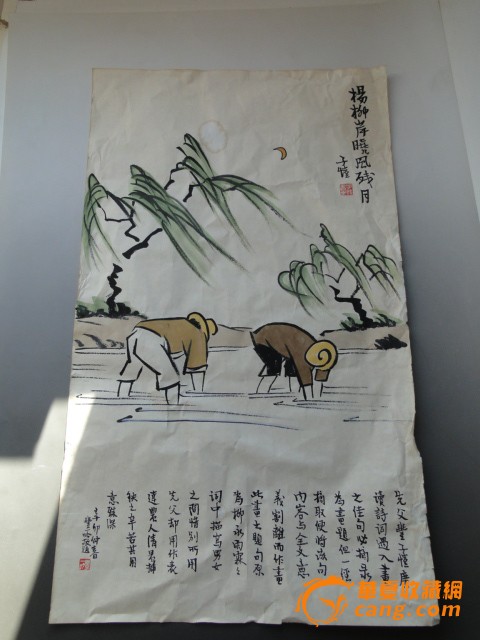 楊柳岸曉風残月
子愷
先父豐子愷
讀詩詞遇入畫
之佳句必摘录
為畫題但一經
摘取便將该句
内容与全文意
義割離而作畫
此畫之題句原
為柳永雨霖
詞中描寫男女
之間惜別所用
先父却用作表
達農人清晨插
秧之辛苦其用
意深
辛卯仲春
豐一吟敬題
華夏收藏網
cang.com